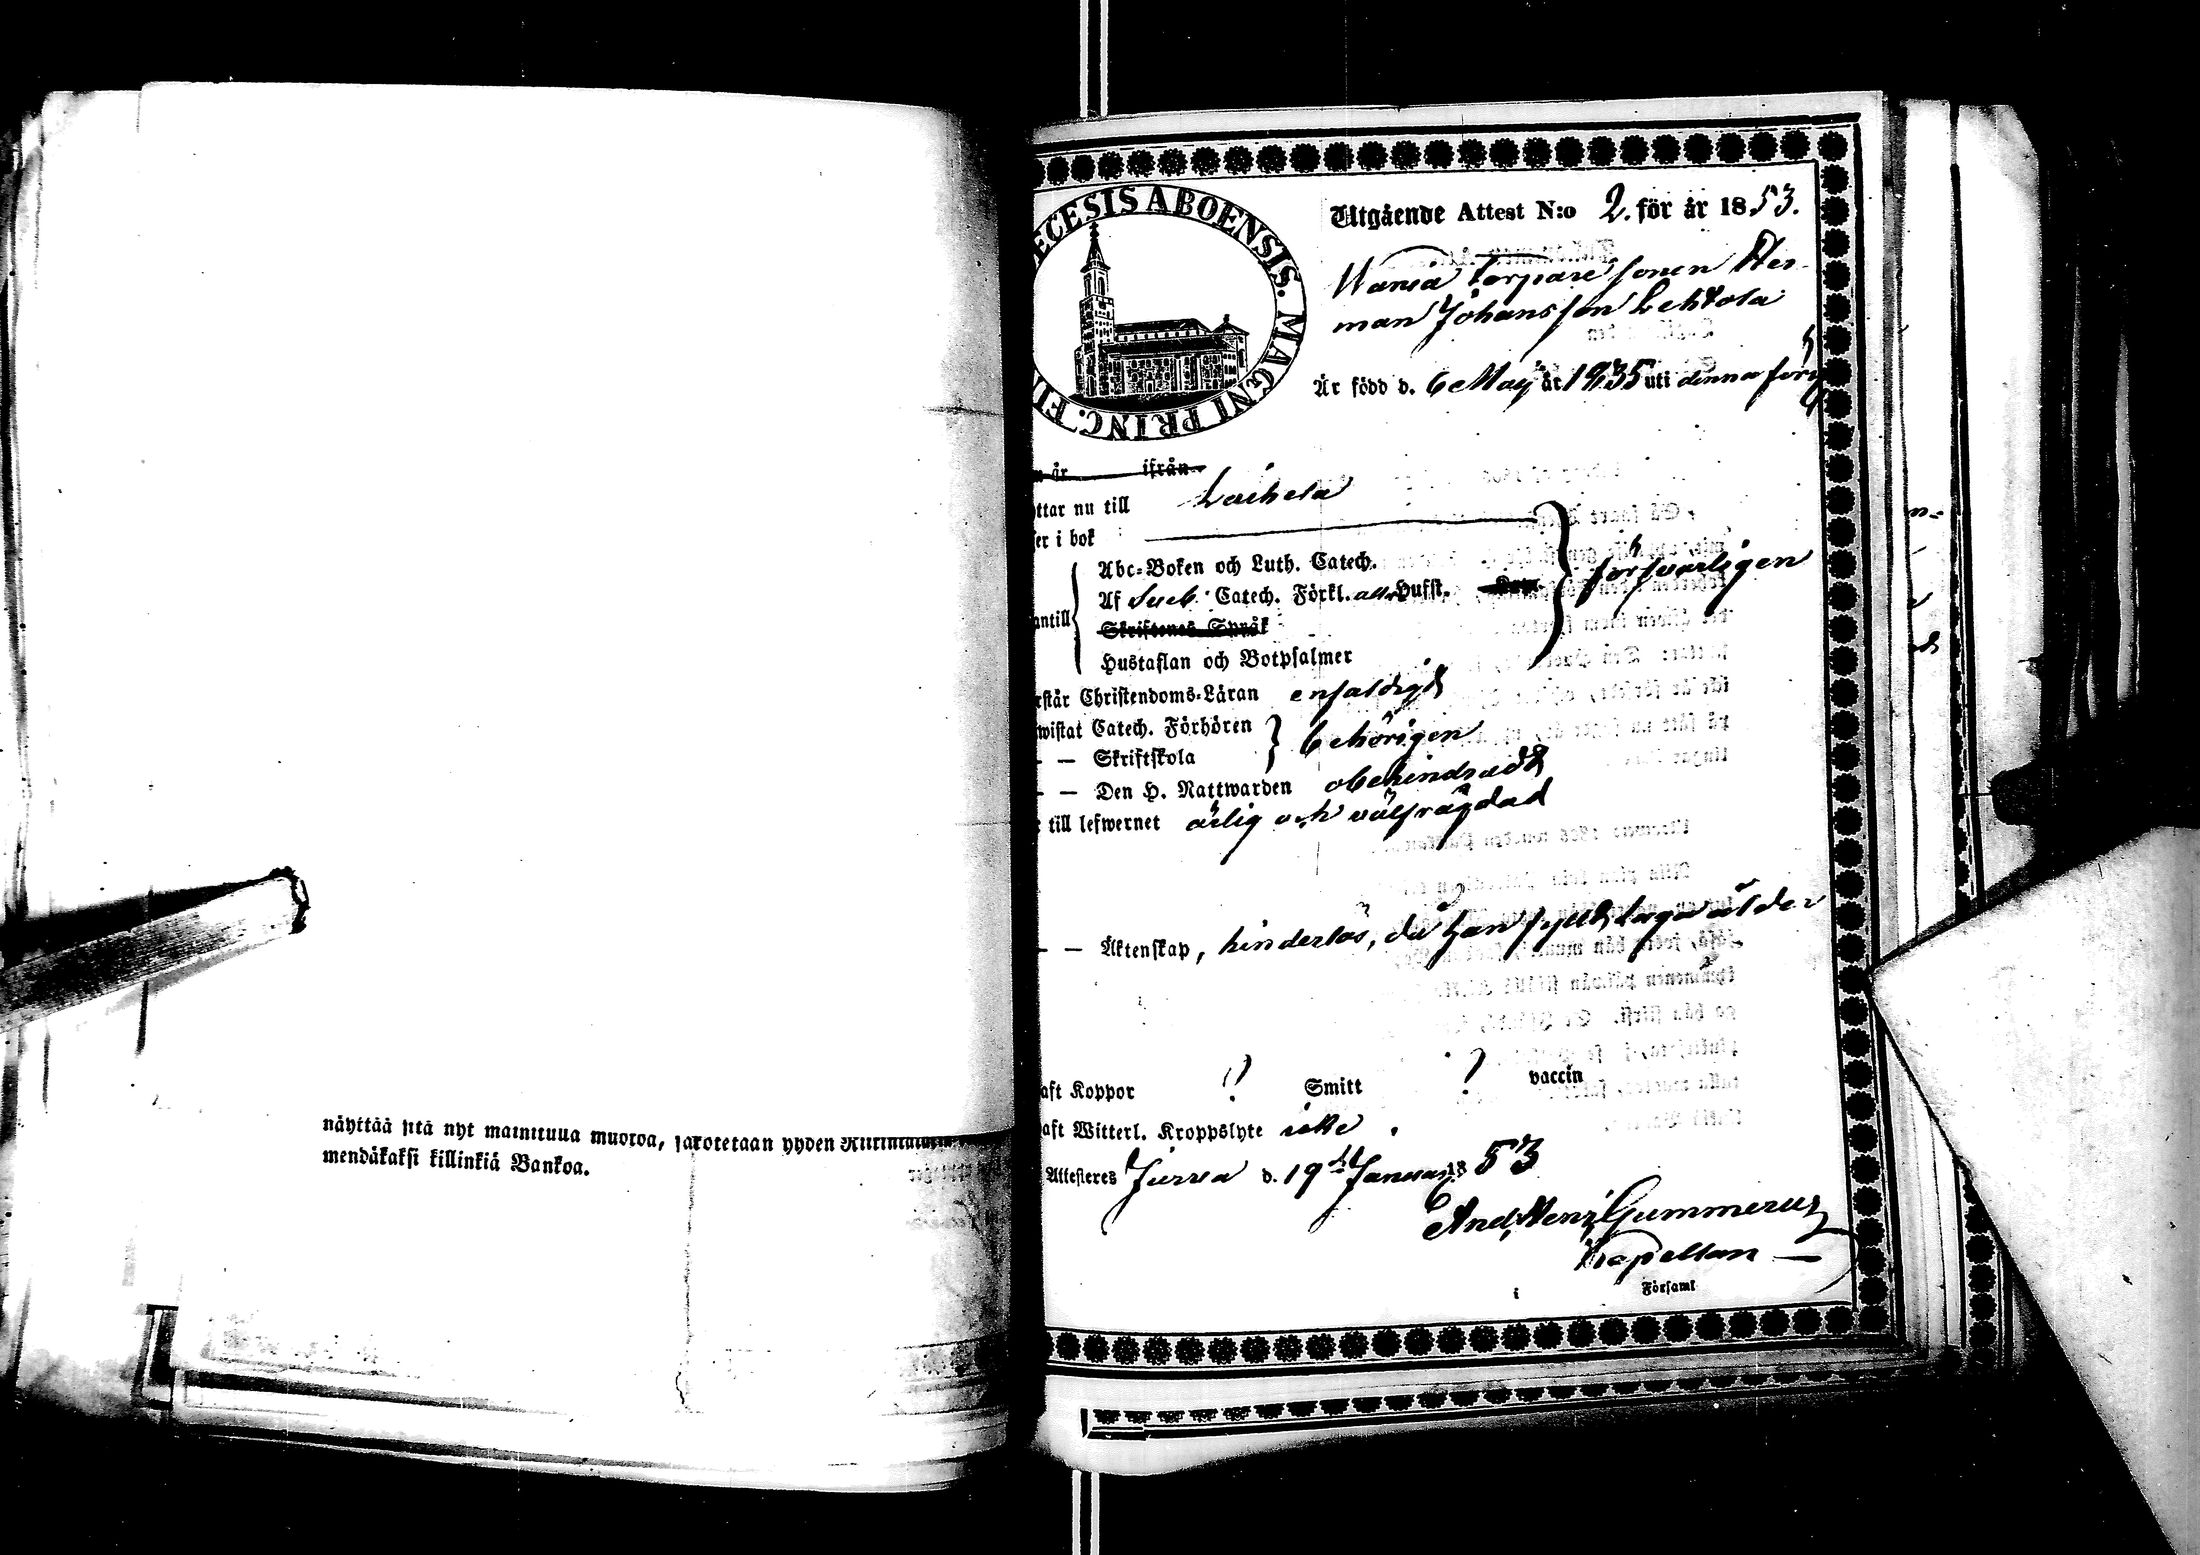 näyttää sitä nyt mainittua muotoa, sakotetaan yhden
mendäkaksi killinkiä Bankoa.
ECESIS ABOENSIS. MAGNI PRINC. FI
Utgående Attest N:o 2. för år 1853.
torpare sonen Her-
man Johansson Lehtola
Är född d. 6 Maij år 1835 uti denna förs
n år ifrån
ttar nu till Laihela
er i bok
Abc-Boken och Luth. Catech.
Af Sveb. Catech. Förkl. alla Hufst.
försvarligen
antill
Skriftenes Språk
Hustaflan och Botpsalmer
rstår Christendoms-Läran enfaldigt
wistat Catech. Förhören
behörigen
— — Skriftskola
— — Den H. Nattwarden obehindradt
till lefwernet ärlig och välfrägdad
— — Äktenskap, hinderlös, då han fyllt laga ålder
aft Koppor ? Smitt ? vaccin
aft Witterl. Kroppslyte icke.
Attesteres Jurva d. 19de Januarii 1853
And. Henr. Gummerus
Kapellan —
i Församl